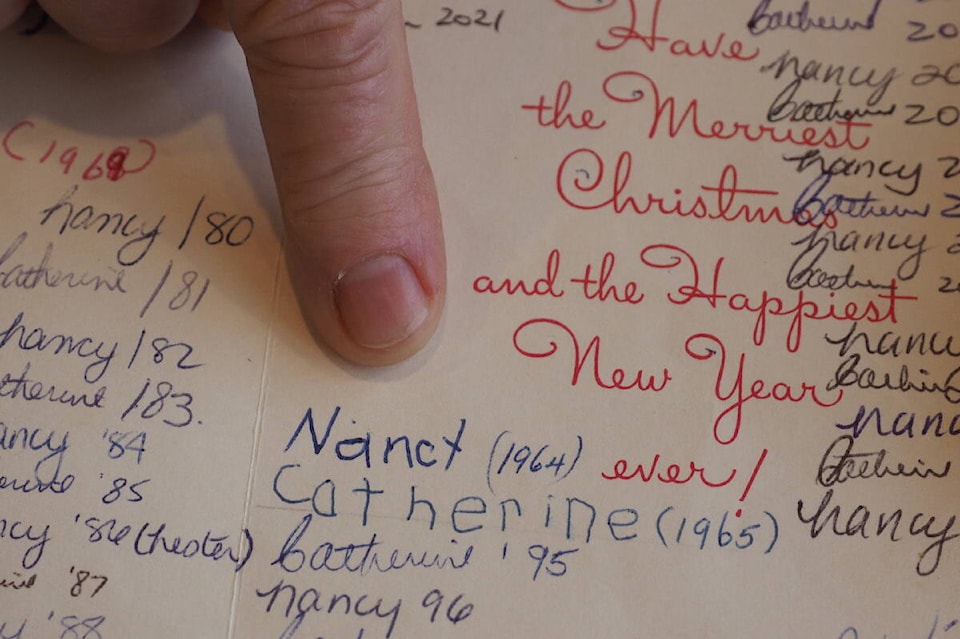 (1969)
nancy /80
Catherine /81
nancy /82
therine /83.
ancy '84
erine '85
ncy '86 (Chester)
'87
'88
2021
Have
the Merriest
Christmas
and the Happiest
New Year
ever!
Nancy (1964)
Catherine (1965)
Catherine '95
nancy 96
Catherine 20
nancy 20
Catherine 20
nancy 2
Catherine 2
nancy 2
Catherine 20
nancy
Catherine
nanc
Catherin
nancy